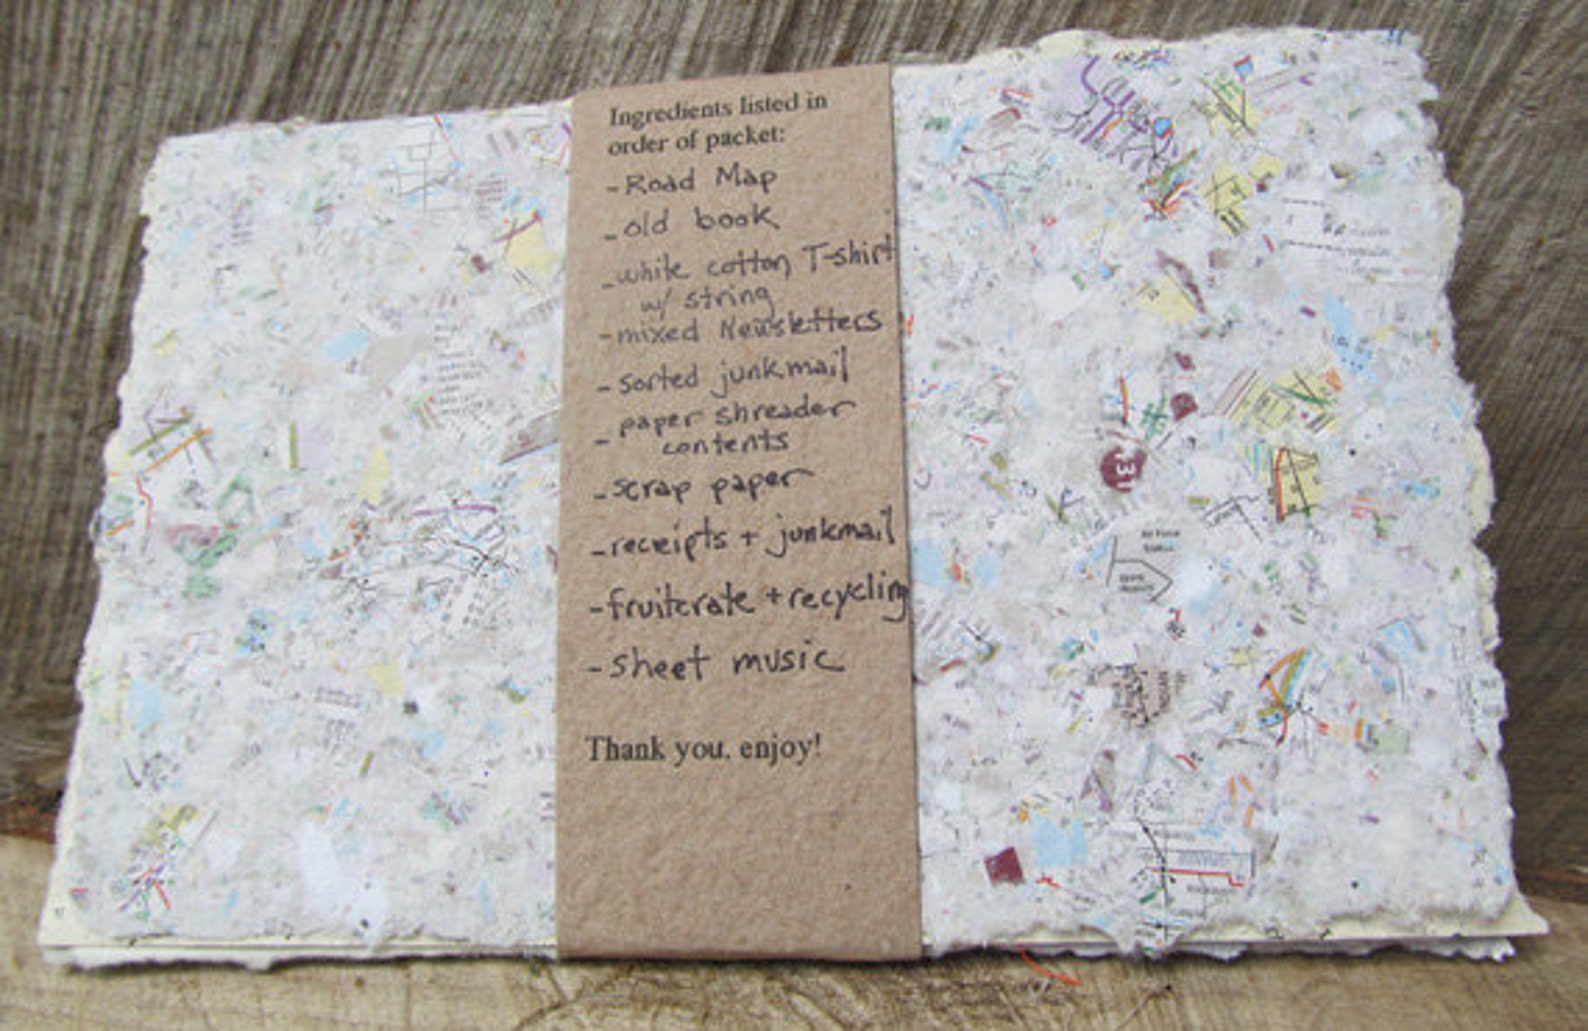 Ingredients listed in
order of packet:
- Road Map
- old book
- white cotton T-shirt
w/ string
- mixed Newsletters
- sorted junkmail
- paper shreader
contents
- scrap paper
- receipts + junkmail
- fruitcrate + recycling
- sheet music
Thank you, enjoy!